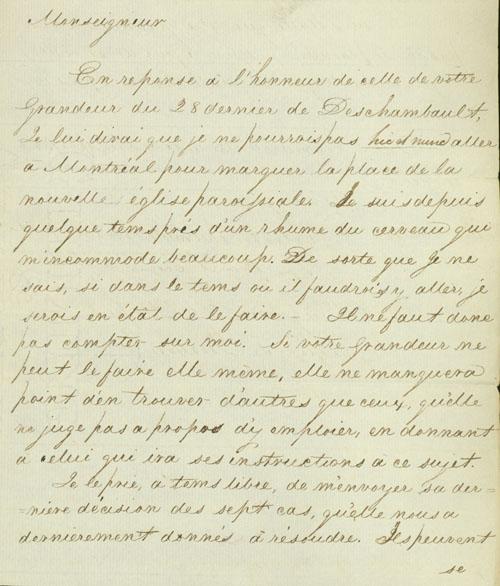 Monseigneur
En reponse à l'honneur de celle de votre
Grandeur du 28 dernier de Deschambault,
Je lui dirai que je ne pourrois pas hic et nunc aller
a Montréal pour marquer la place de la
nouvelle église paroissiale. Je suis depuis
quelque tems près d'un rhume du cerveau qui
m'incommode beaucoup. De sorte que je ne
sais, si dans le tems ou il faudroit y aller, je
serois en état de le faire. — Il ne faut donc
pas compter sur moi. Si votre Grandeur ne
peut le faire elle même, elle ne manquera
point d'en trouver d'autres que ceux, qu'elle
ne juge pas a propos d'y emploier, en donnant
a celui qui ira ses instructions à ce sujet.
Je le prie, a tems libre, de m'envoyer sa der-
=nière décision des sept cas, qu'elle nous a
dernièrement donnés à résoudre. Ils peuvent
se